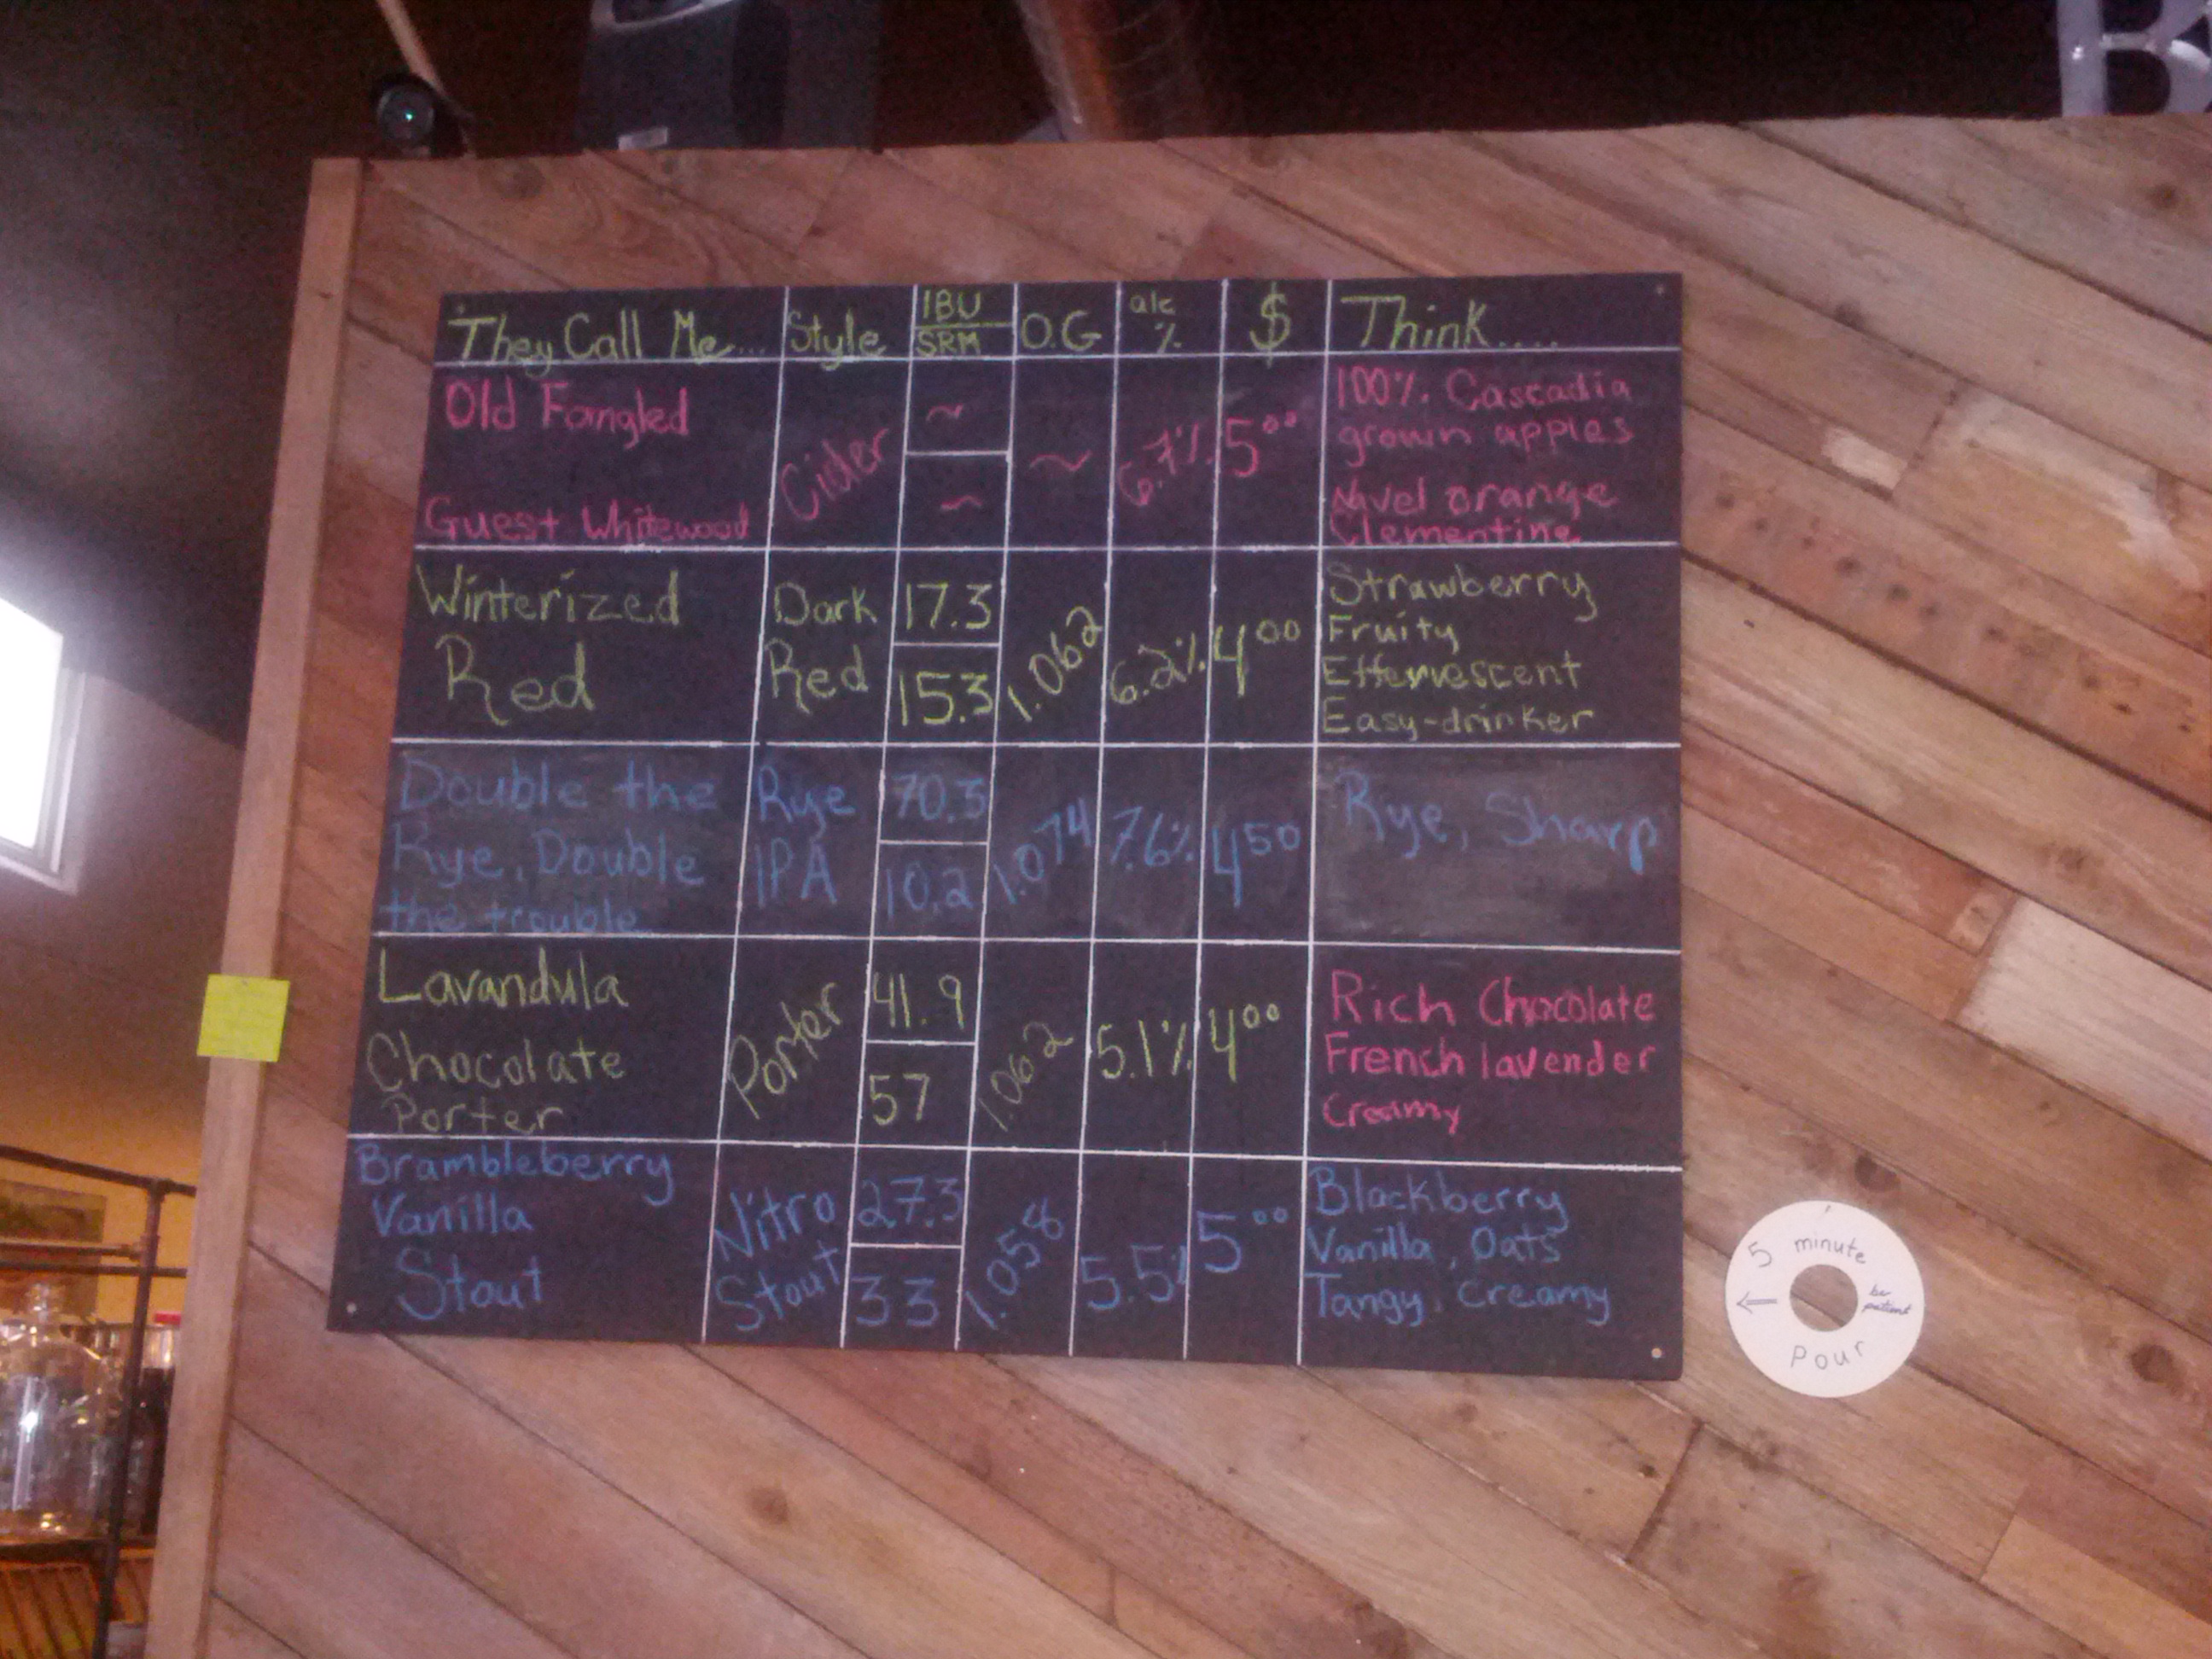 B
They Call Me... Style IBU SRM O.G alc % $ Think....
Old Fangled
Guest Whitewood
Cider
~
~
~
6.7%
5.00
100% Cascadia
grown apples
Navel orange
Clementine
Winterized
Red
Dark
Red
17.3
15.3
1.062
6.2%
4.00
Strawberry
Fruity
Effervescent
Easy-drinker
Double the
Rye, Double
the trouble
Rye
IPA
70.3
10.2
1.074
7.6%
4.50
Rye, Sharp
Lavandula
Chocolate
Porter
Porter
41.9
57
1.062
5.1%
4.00
Rich Chocolate
French lavender
Creamy
Brambleberry
Vanilla
Stout
Nitro
Stout
27.3
33
5.5%
5.00
Blackberry
Vanilla, Oats
Tangy, Creamy
5 minute
← be
patient
Pour